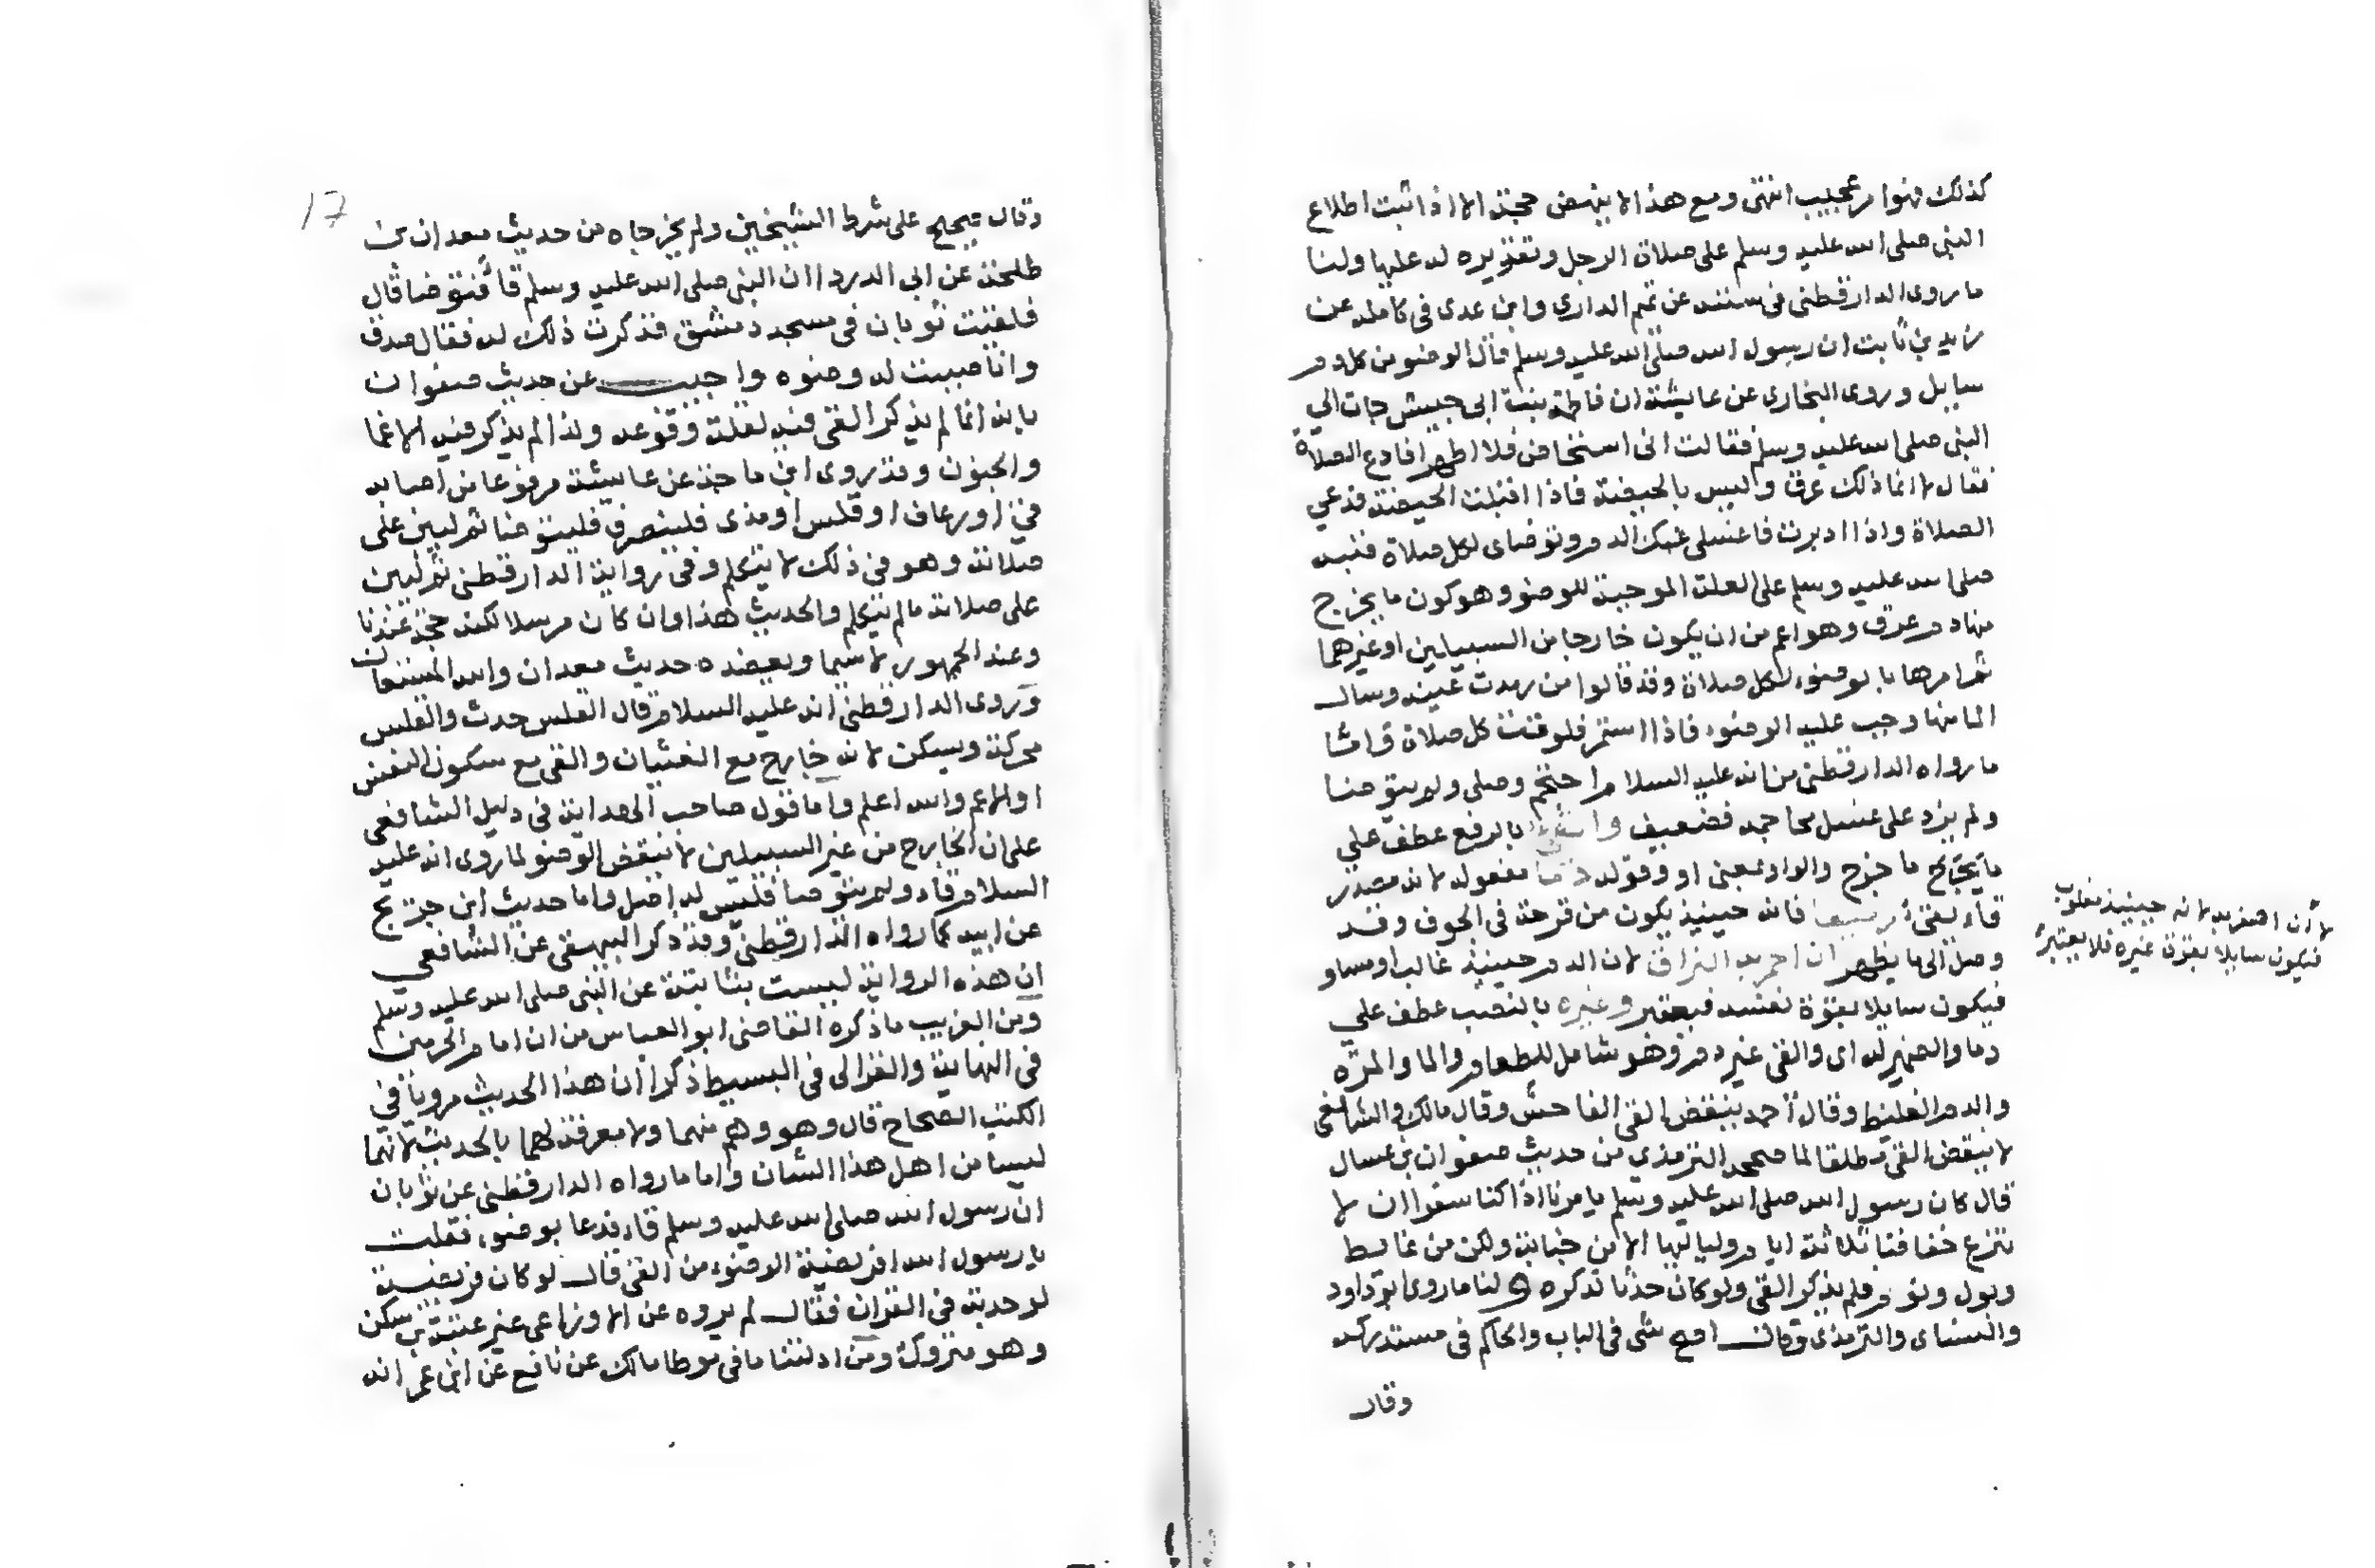 كذلك فهو امر عجيب انتهى ومع هذا لا ينهض حجة الا اذا ثبت اطلاع
النبي صلى الله عليه وسلم على صلاة الرجل وتقريره له عليها ولنا
ما روى الدارقطني في سننه عن تميم الداري وابن عدى في كامله عن
زيد بن ثابت ان رسول الله صلى الله عليه وسلم قال الوضوء من كل دم
سايل وروى البخاري عن عايشة ان فاطمة بنت ابى حبيش جات الي
النبي صلى الله عليه وسلم فقالت انى استحاض فلا اطهر افادع الصلاة
فقال لا انما ذلك عرق وليس بالحيضة فاذا اقبلت الحيضة فدعي
الصلاة واذا ادبرت فاغسلى عنك الدم وتوضاى لكل صلاة فنبه
صلى الله عليه وسلم على العلة الموجبة للوضوء وهو كون ما يخرج
منها دم عرق وهو اعم من ان يكون خارجا من السبيلين او غيرهما
ثم امرها بالوضوء لكل صلاة وقد قالوا من رمدت عينه وسال
الما منها وجب عليه الوضوء فاذا استمر فلوقت كل صلاة واما
ما رواه الدارقطني من انه عليه السلام احتجم وصلى ولم يتوضا
ولم يزد على غسل محاجمه فضعيف بالرفع عطف علي
ما خرج والواو بمعنى او وقوله دما مفعوله لانه مصدر
قاء يقئ فانه حينيذ يكون من قرحة في الجوف وقد
وصل الى ما يظهر ان احمر به البزاق لان الدم حينيذ غالب او مساو
فيكون سايلا بقوة نفسه فيعتبر وغيره بالنصب عطف علي
دما والضمير له اى والقى غير دم وهو شامل للطعام والما والمرة
والدم الغليظ وقال احمد ينقض القى الفاحش وقال مالك والشافعى
لا ينقض القى مطلقا لما صححه الترمذي من حديث صفوان بن عسال
قال كان رسول الله صلى الله عليه وسلم يامرنا اذا كنا سفرا ان لا
ننزع خفافنا ثلاثة ايام ولياليها الا من جنابة ولكن من غايط
وبول ونوم فلم يذكر القى ولو كان حدثا لذكره ولنا ما روى ابو داود
والنسائ والترمذى وقال اصح شى في الباب والحاكم في مستدركه
وقال
لا ان اصفر به لانه حينيذ مغلوب
فيكون سايلا بقوة غيره فلا يعتبر
17
وقال صحيح على شرط الشيخين ولم يخرجاه من حديث معدان بن
طلحة عن ابى الدردا ان النبى صلى الله عليه وسلم قاء فتوضا قال
فلقيت ثوبان في مسجد دمشق فذكرت ذلك له فقال صدق
وانا صببت له وضوه واجيب عن حديث صفوان
بانه انما لم يذكر القى فيه لقلة وقوعه ولذا لم يذكر فيه الاغما
والجنون وقد روى ابن ماجة عن عايشة مرفوعا من اصابه
قئ او رعاف او قلس او مذى فلينصرف فليتوضا ثم ليبن على
صلاته وهو في ذلك لا يتكلم وفى رواية الدارقطنى ثم ليبن
على صلاته ما لم يتكلم والحديث هذا وان كان مرسلا لكنه حجة عندنا
وعند الجمهور لا سيما ويعضده حديث معدان والله المستعان
وروى الدارقطني انه عليه السلام قال القلس حدث والقلس
محركة ويسكن لانه خارج مع الغثيان والقى مع سكون النفس
او الاعم والله اعلم واما قول صاحب الهداية في دليل الشافعى
على ان الخارج من غير السبيلين لا ينقض الوضو لما روى انه عليه
السلام قاء ولم يتوضا فليس له اصل واما حديث ابن جريج
عن ابيه كما رواه الدارقطنى وقد ذكر البيهقى عن الشافعي
ان هذه الرواية ليست بثابتة عن النبى صلى الله عليه وسلم
ومن الغريب ما ذكره القاضى ابو العباس من ان امام الحرمين
في النهاية والغزالى في البسيط ذكرا ان هذا الحديث مرويا في
الكتب الصحاح قال وهو وهم منهما ولا معرفة لهما بالحديث لانهما
ليسا من اهل هذا الشان واما ما رواه الدارقطنى عن ثوبان
ان رسول الله صلى الله عليه وسلم قاء فدعا بوضوء فقلت
يا رسول الله افريضة الوضوء من القى قال لو كان فريضة
لوجدته في القران فقال لم يروه عن الاوزاعى غير عتبة بن سكن
وهو متروك ومن ادلتنا ما في موطا مالك عن نافع عن ابن عمر انه